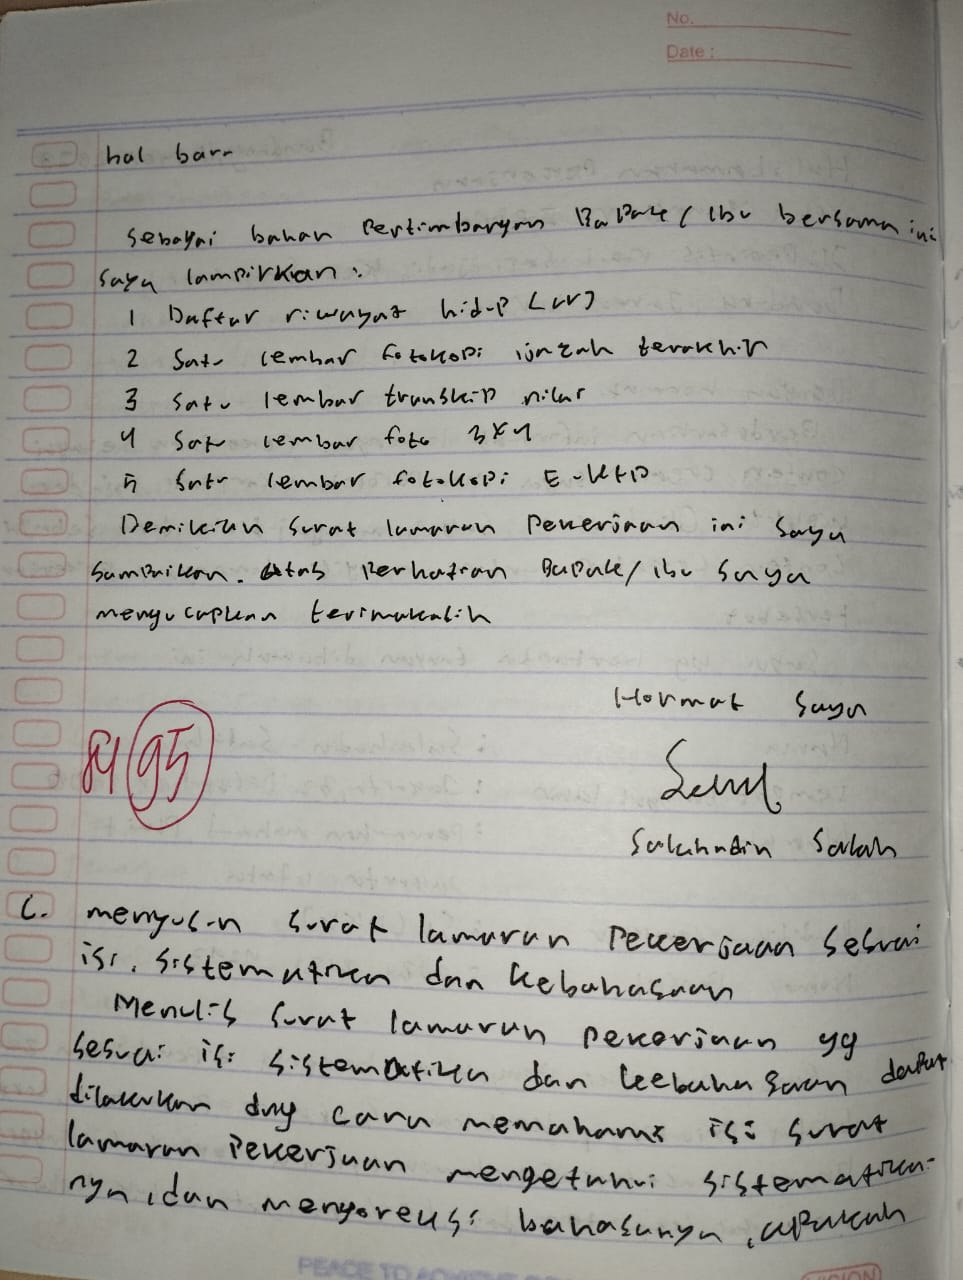 No.
Date :
hal baru
Sebagai bahan Pertimbangan Bapak / Ibu bersama ini
saya lampirkan :
1 Daftar riwayat hidup (cv)
2 Satu lembar fotokopi ijazah terakhir
3 Satu lembar transkip nilai
4 Satu lembar foto 3x4
5 Satu lembar fotokopi E-KTP
Demikian surat lamaran Pekerjaan ini saya
sampaikan. atas Perhatian Bapak/ibu saya
mengucapkan terimakasih
Hormat saya
84 95
Salahudin Salah
C. menyusun surat lamaran Pekerjaan sesuai
isi, sistematika dan kebahasaan
Menulis surat lamaran pekerjaan yg
sesuai isi sistematika dan kebahasaan dapat
dilakukan dng cara memahami isi surat
lamaran Pekerjaan mengetahui sistematika-
nya, dan mengoreksi bahasanya, apakah